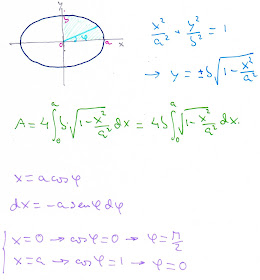 y
b
0
φ
a
x
x²/a² + y²/b² = 1
→ y = ±b√(1 - x²/a²)
A = 4∫₀ᵃ b√(1 - x²/a²) dx = 4b∫₀ᵃ √(1 - x²/a²) dx.
x = a cosφ
dx = -a senφ dφ
x = 0 → cosφ = 0 → φ = π/2
x = a → cosφ = 1 → φ = 0